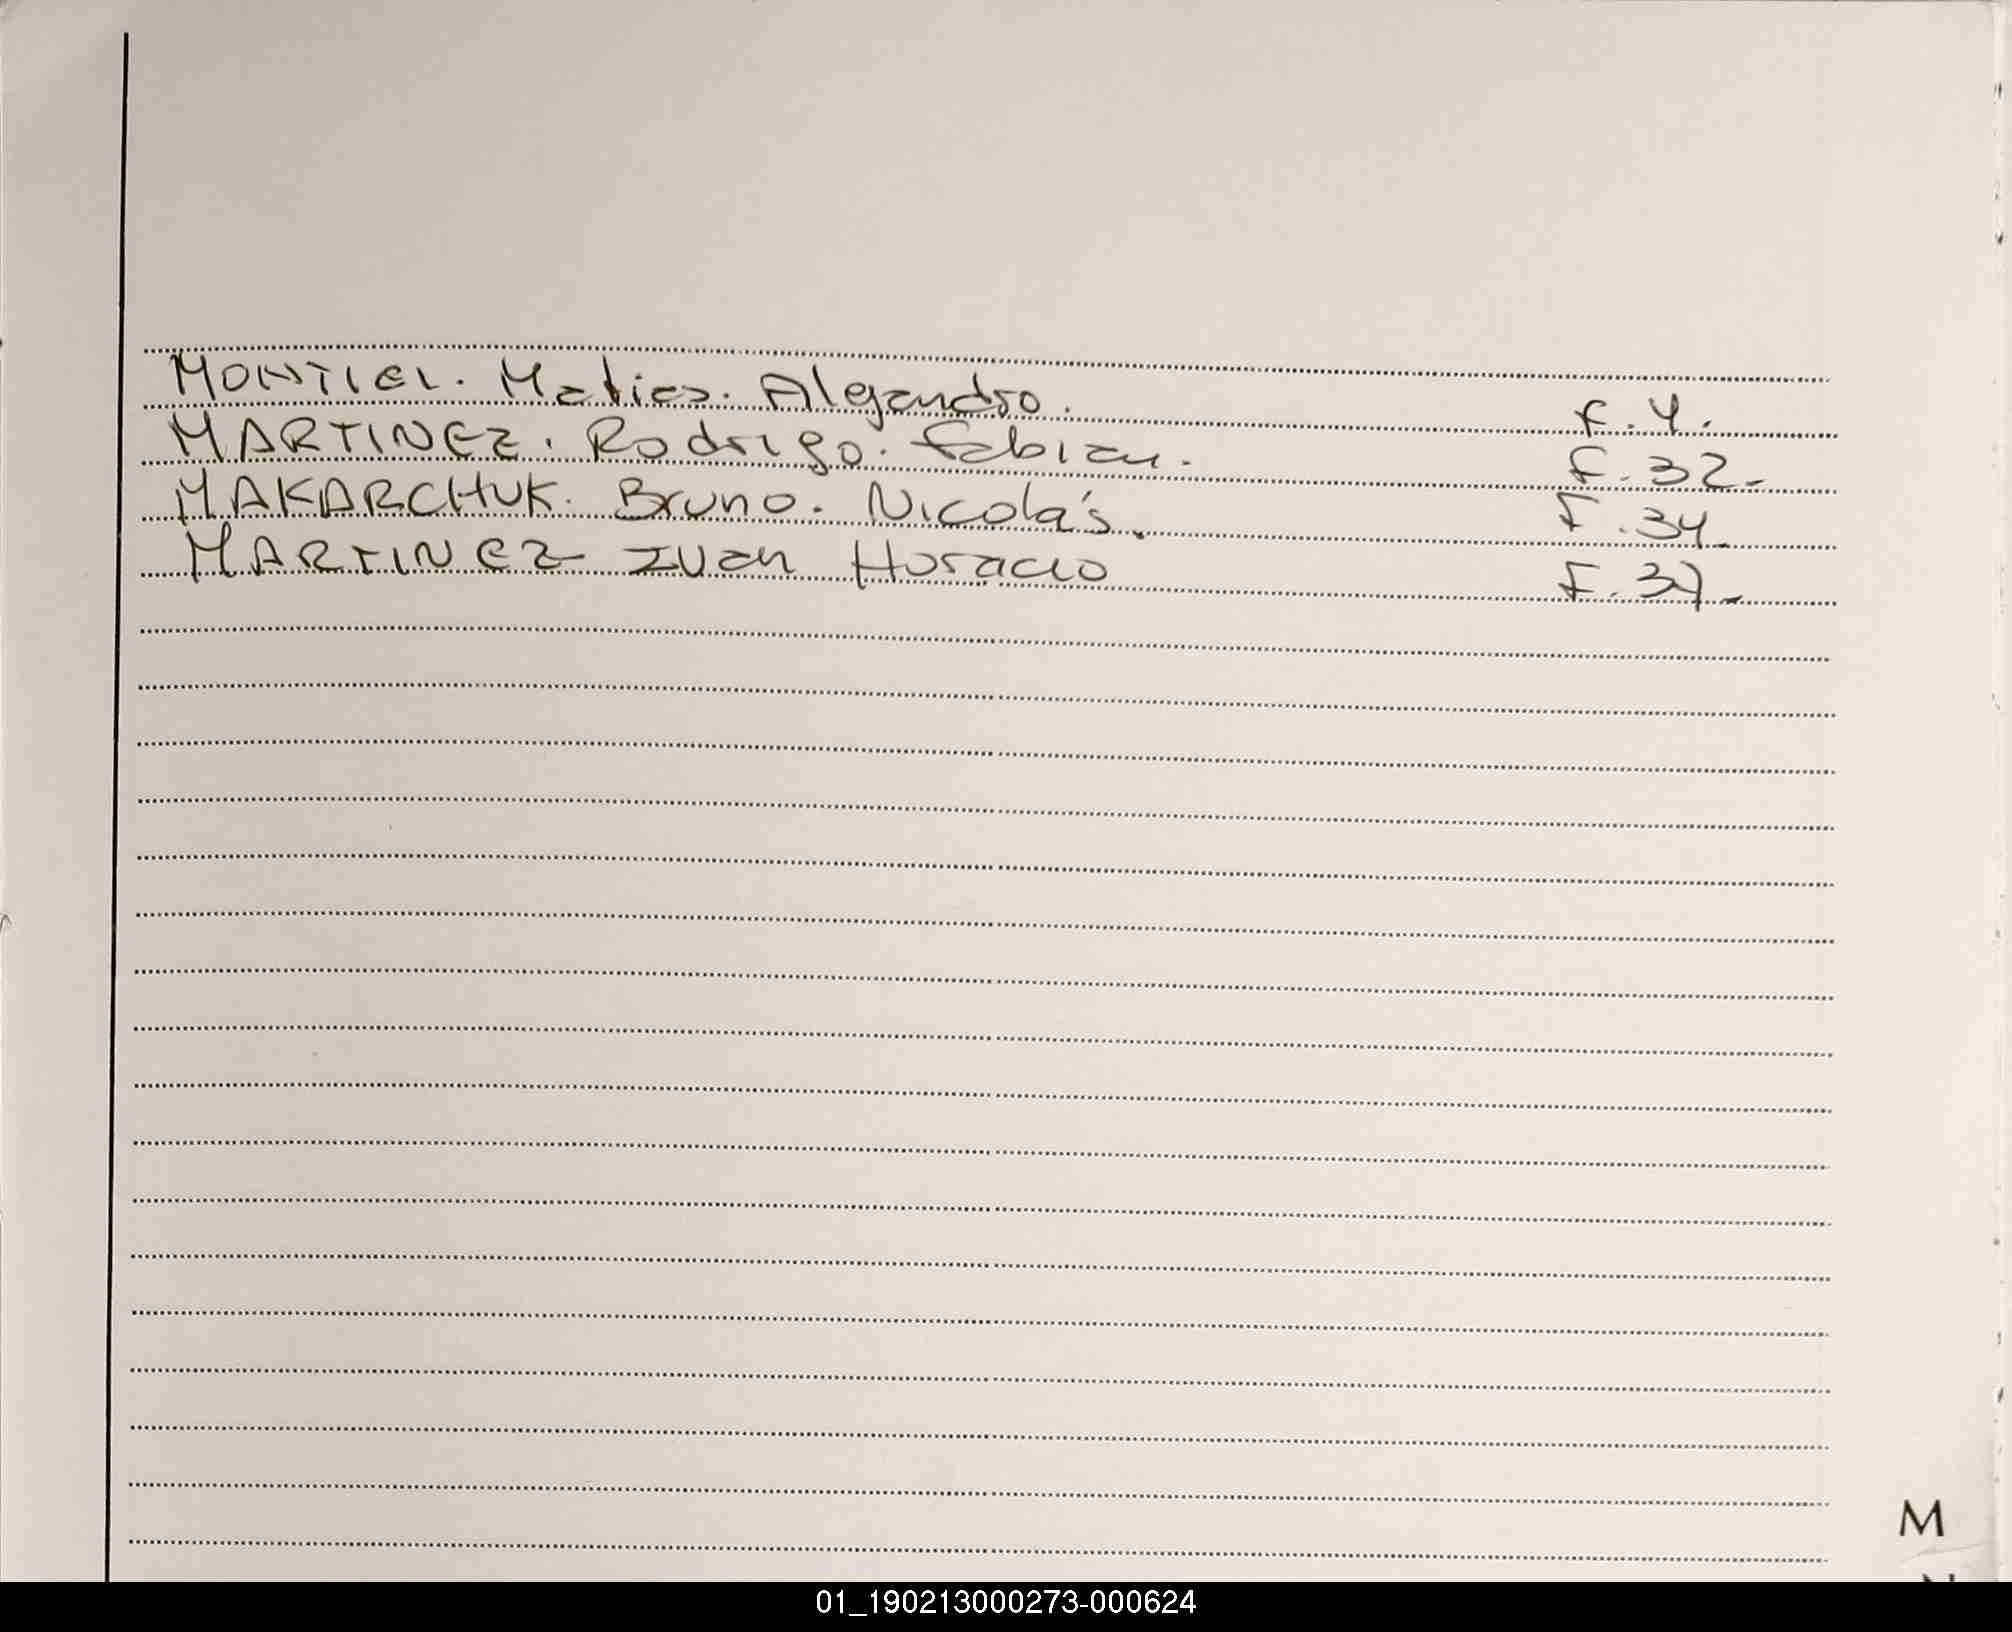 MONTIEL. Matias. Alejandro.
F.4.
MARTINEZ. Rodrigo. Fabian.
F.32.-
MAKARCHUK. Bruno. Nicolás.
F.34.-
MARTINEZ Ivan Horacio
M
01_190213000273-000624